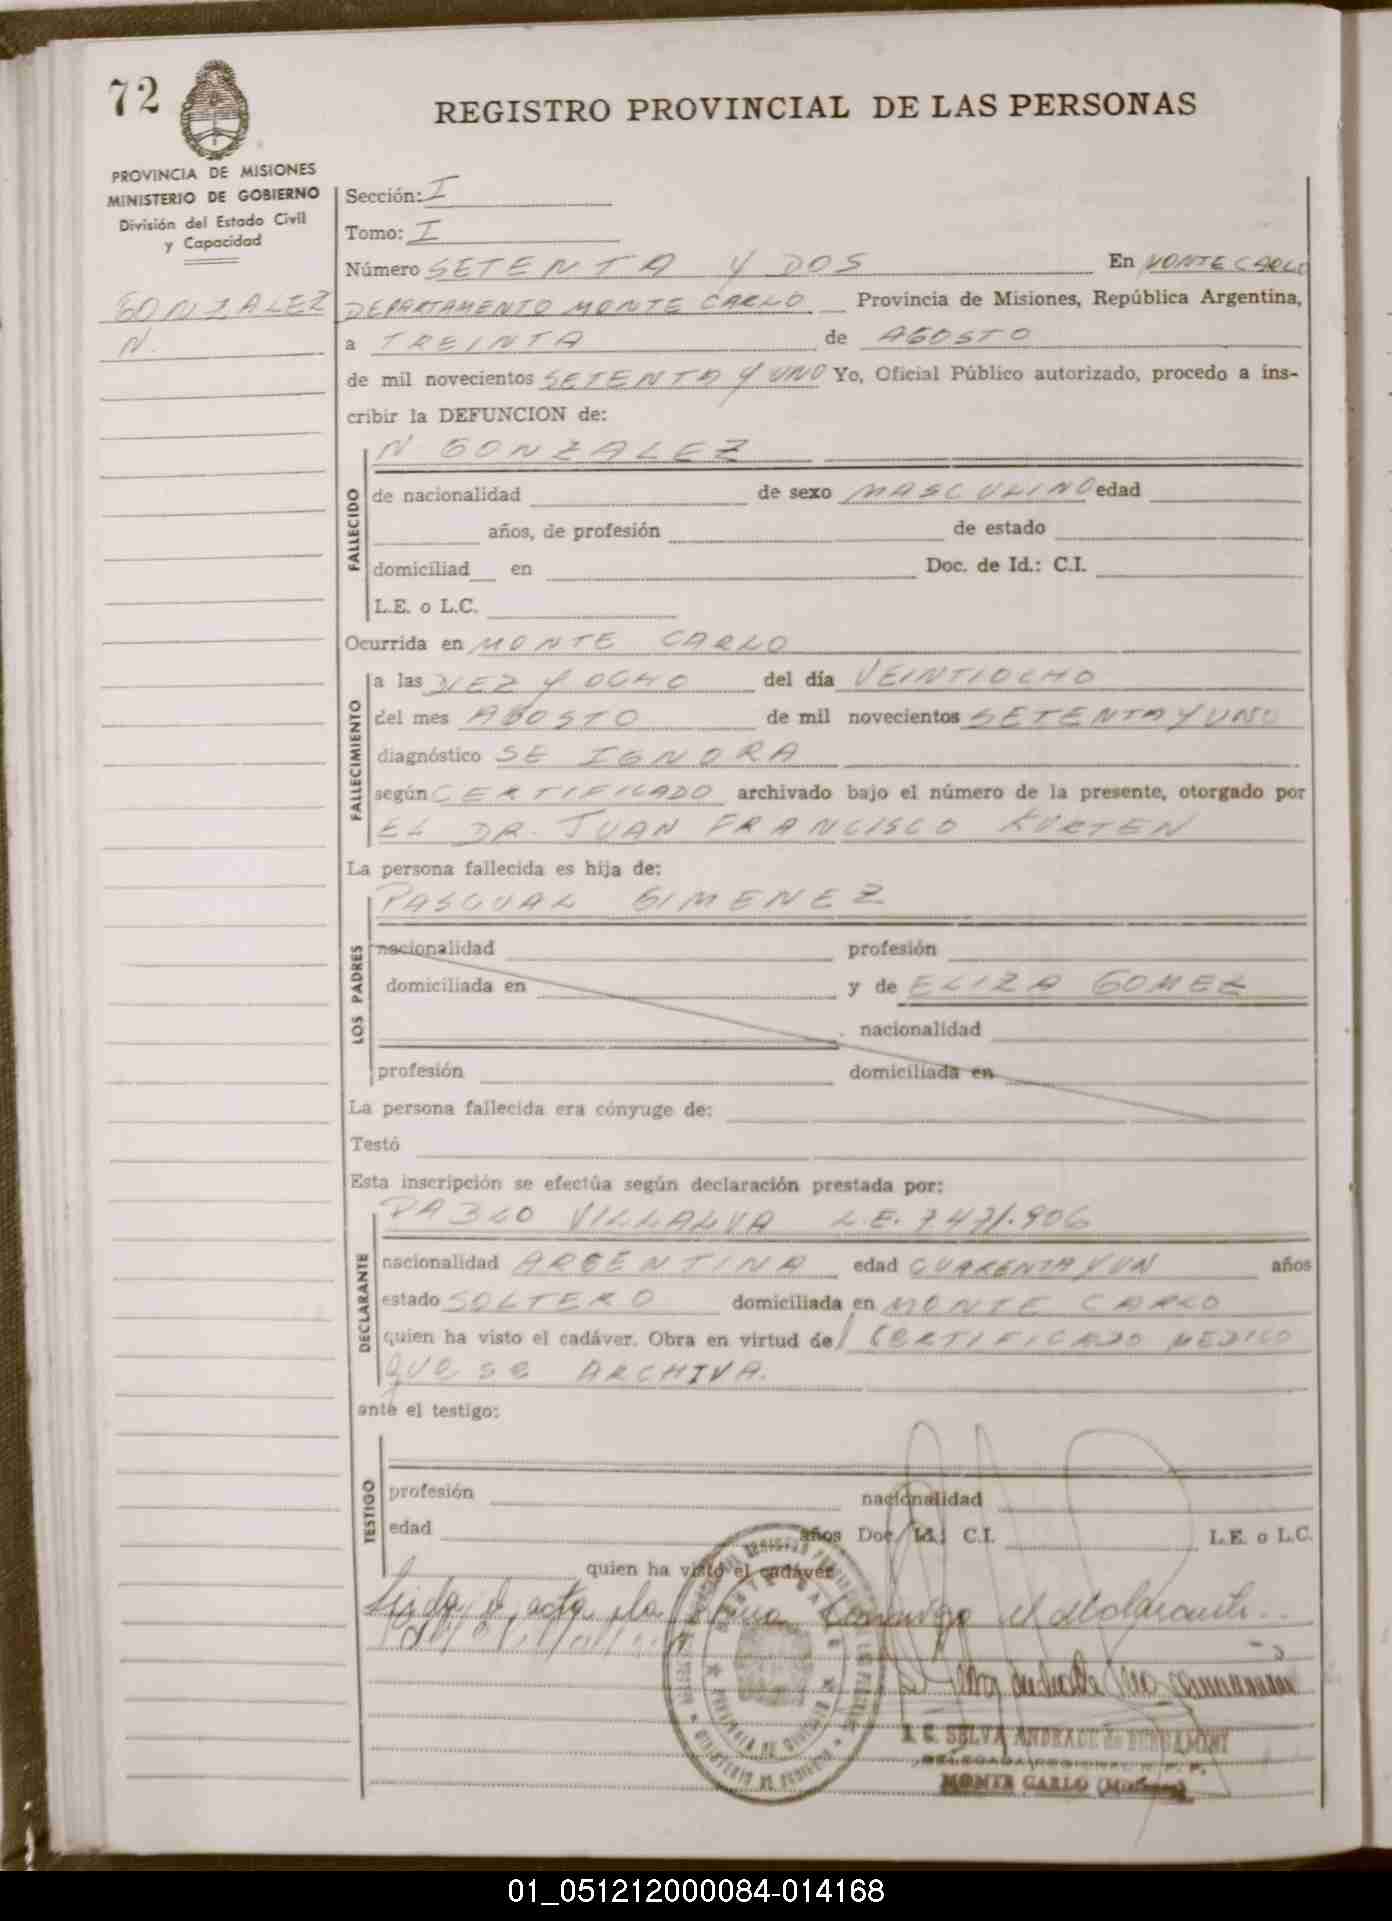 72
REGISTRO PROVINCIAL DE LAS PERSONAS
PROVINCIA DE MISIONES
MINISTERIO DE GOBIERNO
División del Estado Civil
y Capacidad
GONZALEZ
N.
Sección: I
Tomo: I
Número SETENTA Y DOS En MONTE CARLO
DEPARTAMENTO MONTE CARLO Provincia de Misiones, República Argentina,
a TREINTA de AGOSTO
de mil novecientos SETENTA Y UNO Yo, Oficial Público autorizado, procedo a ins-
cribir la DEFUNCION de:
N GONZALEZ
FALLECIDO
de nacionalidad de sexo MASCULINO edad
años, de profesión de estado
domiciliad en Doc. de Id.: C.I.
L.E. o L.C.
Ocurrida en MONTE CARLO
FALLECIMIENTO
a las DIEZ Y OCHO del día VEINTIOCHO
del mes AGOSTO de mil novecientos SETENTA Y UNO
diagnóstico SE IGNORA
según CERTIFICADO archivado bajo el número de la presente, otorgado por
EL DR. JUAN FRANCISCO KURTEN
La persona fallecida es hija de:
PASCUAL GIMENEZ
LOS PADRES
nacionalidad profesión
domiciliada en y de ELIZA GOMEZ
nacionalidad
profesión domiciliada en
La persona fallecida era cónyuge de:
Testó
Esta inscripción se efectúa según declaración prestada por:
PABLO VILLALVA L.E. 7471.906
DECLARANTE
nacionalidad ARGENTINA edad CUARENTA Y UN años
estado SOLTERO domiciliada en MONTE CARLO
quien ha visto el cadáver. Obra en virtud de CERTIFICADO MEDICO
QUE SE ARCHIVA.
ante el testigo:
TESTIGO
profesión nacionalidad
edad años Doc. Id.: C.I. L.E. o L.C.
quien ha visto el cadáver
Leída el acta la firma conmigo el declarante..
SELVA ANDRADE de
DELEGADA
MONTE CARLO (Misiones)
01_051212000084-014168